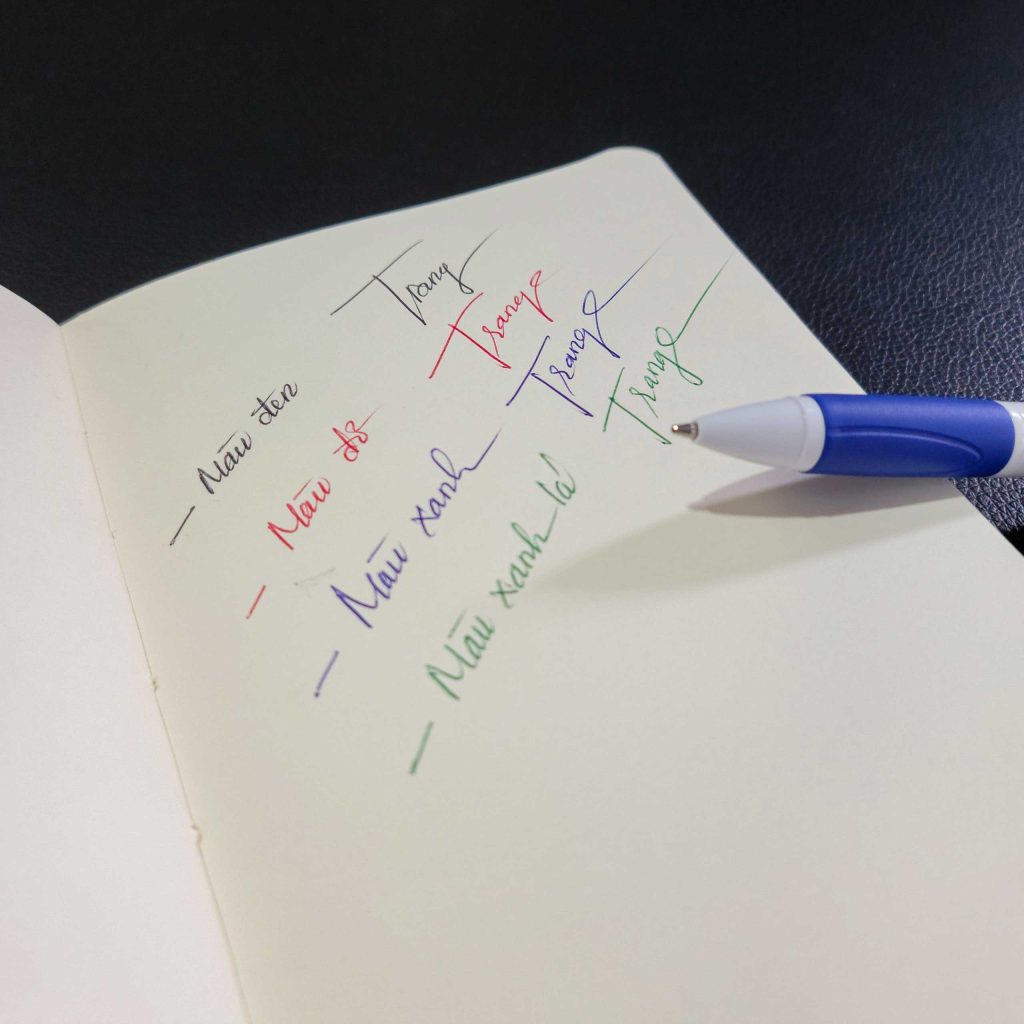 - Màu đen Trang
- Màu đỏ Trang
- Màu xanh Trang
- Màu xanh lá Trang